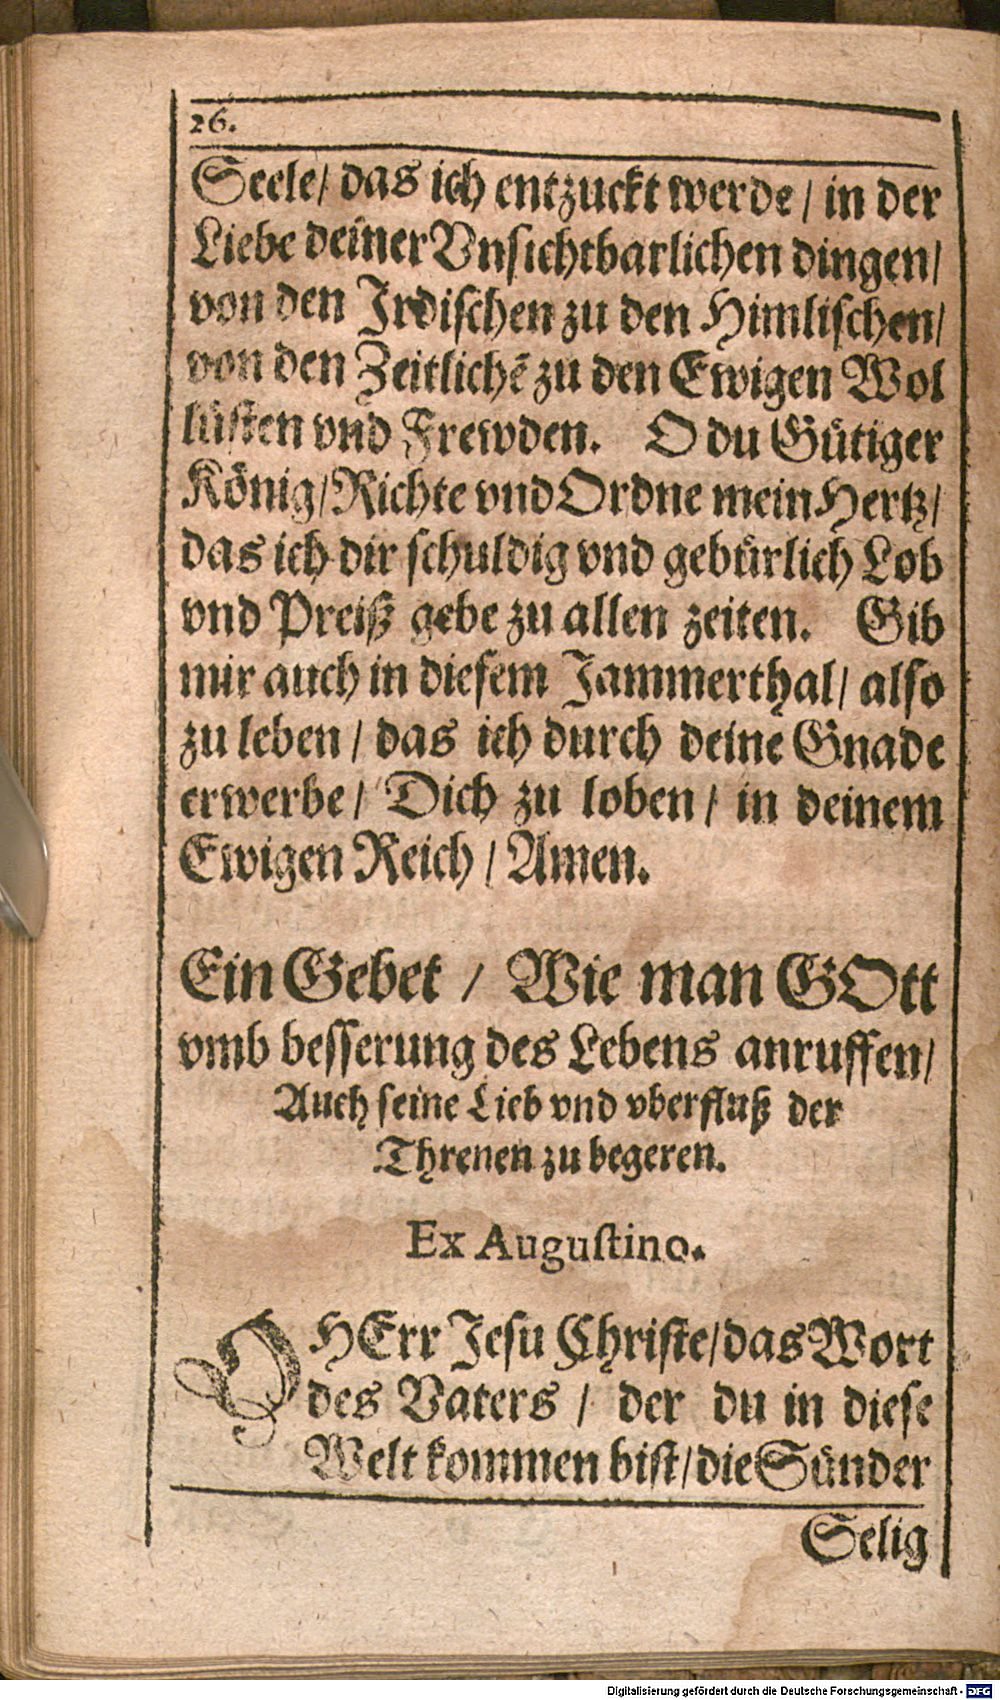 26.
Seele/ das ich entzuckt werde/ in der
Liebe deiner Vnsichtbarlichen dingen/
von den Irdischen zu den Himlischen/
von den Zeitlichē zu den Ewigen Wol
lüsten vnd Frewden. O du Gütiger
König/ Richte vnd Ordne mein Hertz/
das ich dir schuldig vnd gebürlich Lob
vnd Preiß gebe zu allen zeiten. Gib
mir auch in diesem Jammerthal/ also
zu leben/ das ich durch deine Gnade
erwerbe/ Dich zu loben/ in deinem
Ewigen Reich/ Amen.
Ein Gebet / Wie man GOtt
vmb besserung des Lebens anruffen/
Auch seine Lieb vnd vberfluß der
Threnen zu begeren.
Ex Augustino.
O HErr Jesu Christe/ das Wort
des Vaters / der du in diese
Welt kommen bist/ die Sünder
Selig
Digitalisierung gefördert durch die Deutsche Forschungsgemeinschaft - DFG